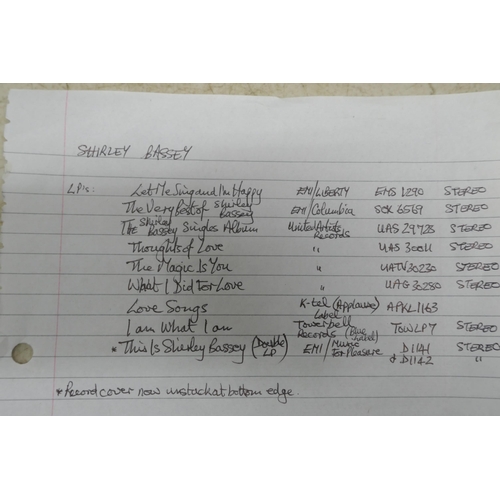 SHIRLEY BASSEY
LP's: Let Me Sing and I'm Happy EMI/LIBERTY EMS 1290 STEREO
The Very Best of Shirley Bassey EMI/Columbia SCX 6569 STEREO
The Shirley Bassey Singles Album United Artists Records UAS 29728 STEREO
Thoughts of Love " UAS 30011 STEREO
The Magic Is You " UATV 30230 STEREO
What I Did For Love " UAG 30280 STEREO
Love Songs K-tel (Applause) Label APKL 1163
I am What I am Towerbell Records (Blue Label) TOWLP7 STEREO
* This Is Shirley Bassey (Double LP) EMI/Music For Pleasure D1141 & D1142 STEREO "
* Record cover now unstuck at bottom edge.